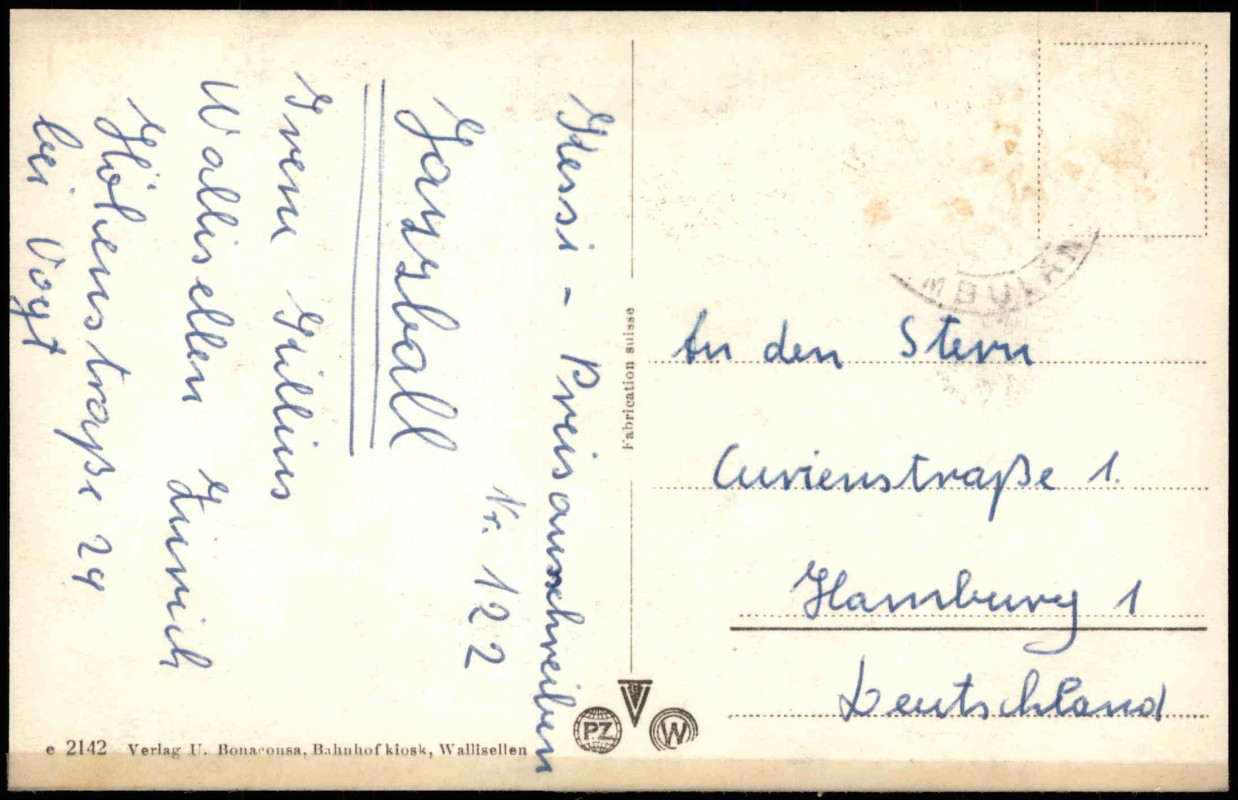 Hessi - Preisausschreiben
Nr. 122
Jazzball
Irene
Wallisellen Zürich
Höhenstraße 24
bei Vogt
Fabrication suisse
MBULAN
An den Stern
Curienstraße 1.
Hamburg 1
Deutschland
PZ
W
e 2142 Verlag U. Bonaconsa, Bahnhofkiosk, Wallisellen